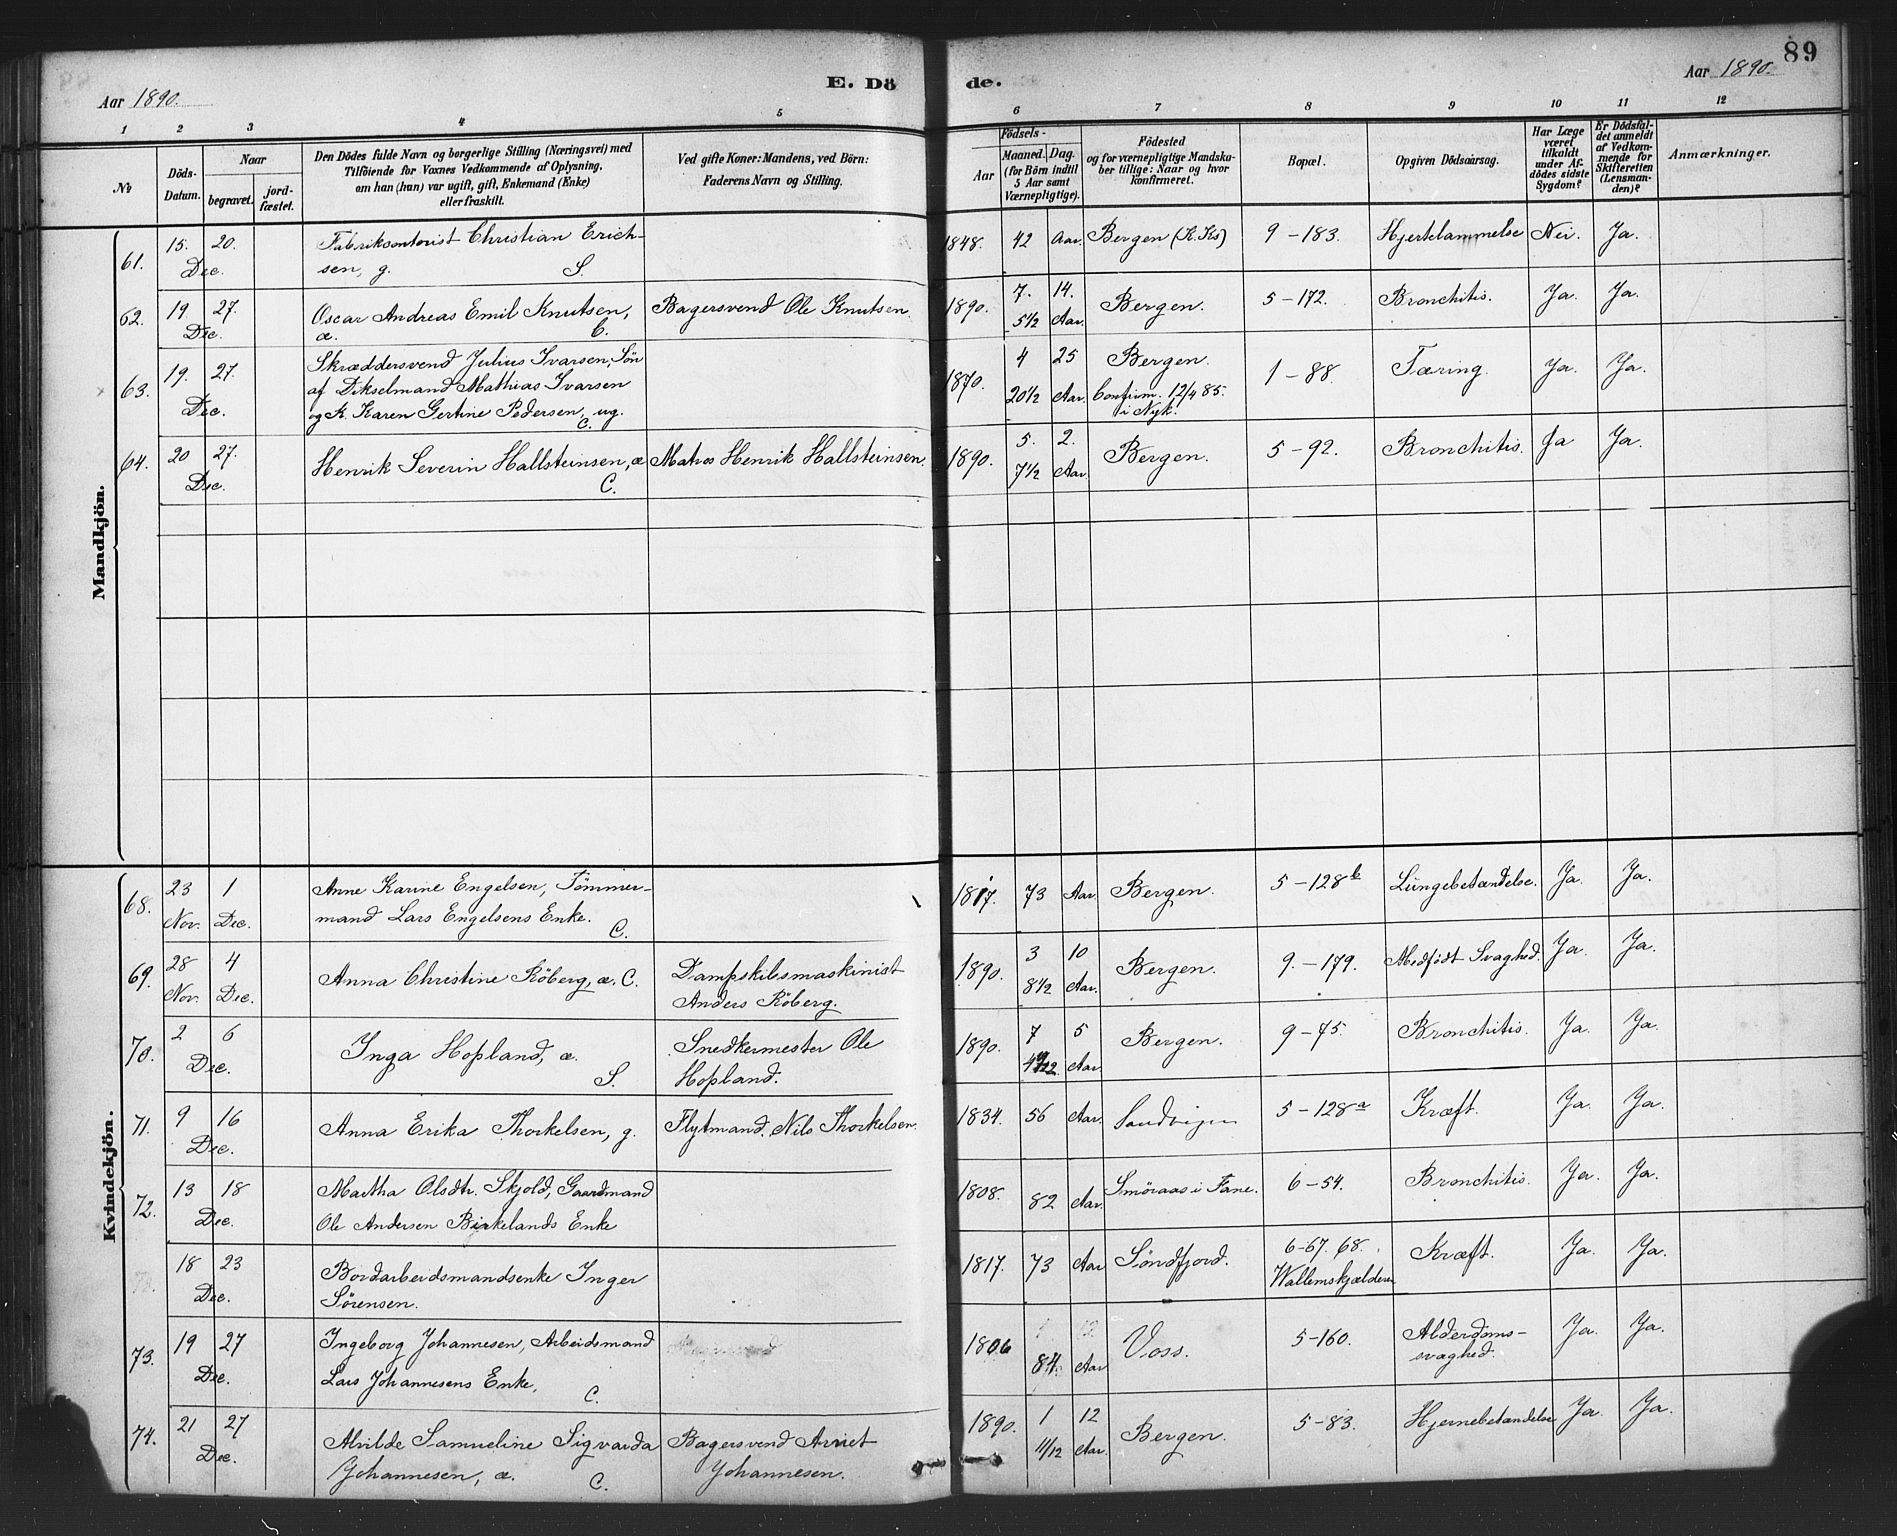 89
E. Dö de.
Aar 1890. Aar 1890.
1 2 3 4 5 6 7 8 9 10 11 12
No
Döds-Datum.
Naar begravet. jord-fæstet.
Den Dödes fulde Navn og borgerlige Stilling (Næringsvei) med
Tilföiende for Voxnes Vedkommende af Oplysning,
om han (hun) var ugift, gift, Enkemand (Enke)
eller fraskilt.
Ved gifte Koner: Mandens, ved Börn:
Faderens Navn og Stilling.
Födsels-
Aar
Maaned. Dag.
(for Börn indtil
5 Aar samt
Værnepligtige).
Födested
og for værnepligtige Mandska-
ber tillige: Naar og hvor
Konfirmeret.
Bopæl.
Opgiven Dödsaarsag.
Har Læge
været
tilkaldt
under Af-
dödes sidste
Sygdom?
Er Dödsfal-
det anmeldt
af Vedkom-
mende for
Skifteretten
(Lensman-
den)?
Anmærkninger.
Mandkjön.
61. 15. 20. Fabrikcontorist Christian Erich- 1848. 42 Aar. Bergen (K. Ks) 9 - 183. Hjertelammelse Nei. Ja.
Dec. sen, g. S.
62. 19 27. Oscar Andreas Emil Knutsen, Bagersvend Ole Knutsen. 1890. 7. 14. Bergen. 5 - 172. Bronchitis. Ja. Ja.
Dec. æ. C. 5 1/2 Aar.
63. 19. 27. Skræddersvend Julius Ivarsen, Sön 1870. 4 25 Bergen. 1 - 88. Tæring. Ja. Ja.
af Dikselmand Mathias Ivarsen 20 1/2 Aar. Confirm. 12/4 85.
Dec. og K. Karen Gertine Pedersen, ug. C. i Nyk.
64. 20 27. Henrik Severin Hallsteinsen, æ Matros Henrik Hallsteinsen. 1890. 5. 2. Bergen. 5 - 92. Bronchitis. Ja Ja.
Dec. C. 7 1/2 Aar.
Kvindekjön.
68. 23 1 Anne Karine Engelsen, Tömmer- 1817. 73 Aar. Bergen. 5 - 128 b Lungebetændelse. Ja. Ja.
Nov. Dec. mand Lars Engelsens Enke. C.
69. 28 4 Anna Christine Röberg, æ. C. Dampskibsmaskinist 1890. 3 10 Bergen. 9. - 179. Medfödt Svaghed. Ja. Ja.
Nov. Dec. Anders Röberg. 8 1/2 Aar.
70. 2 6 Inga Hopland, æ. Snedkermester Ole 1890. 7 5 Bergen. 9 - 75. Bronchitis. Ja. Ja.
Dec. S. Hopland. Aar.
71. 9 16 Anna Erika Thorkelsen, g. Flytmand. Nils Thorkelsen. 1834. 56 Aar. Sandvigen 5 - 128 a Kræft. Ja. Ja.
Dec.
72. 13 18 Martha Olsdtr. Skjold, Gaardmand 1808. 82 Aar. Smöraas i Fane. 6 - 54. Bronchitis. Ja. Ja.
Dec. Ole Andersen Birkelands Enke
18 23 Bordarbeidsmandsenke Inger 1817. 73 Aar Söndfjord. 6-67. 68. Kræft. Ja. Ja.
Dec. Sörensen. Wallemskjælderen
73. 19 27 Ingeborg Johannesen, Arbeidsmand 1806 84. Aar Voss. 5-160. Alderdoms- Ja. Ja.
Dec. Lars Johannesens Enke, C. svaghed.
74. 21 27 Alvilde Samueline Sigvarda Bagersvend Arnet 1890. 1 12 Bergen. 5-83. Hjernebetændelse Ja. Ja.
Dec. Johannesen, æ. C. Johannesen. 11/12 Aar.